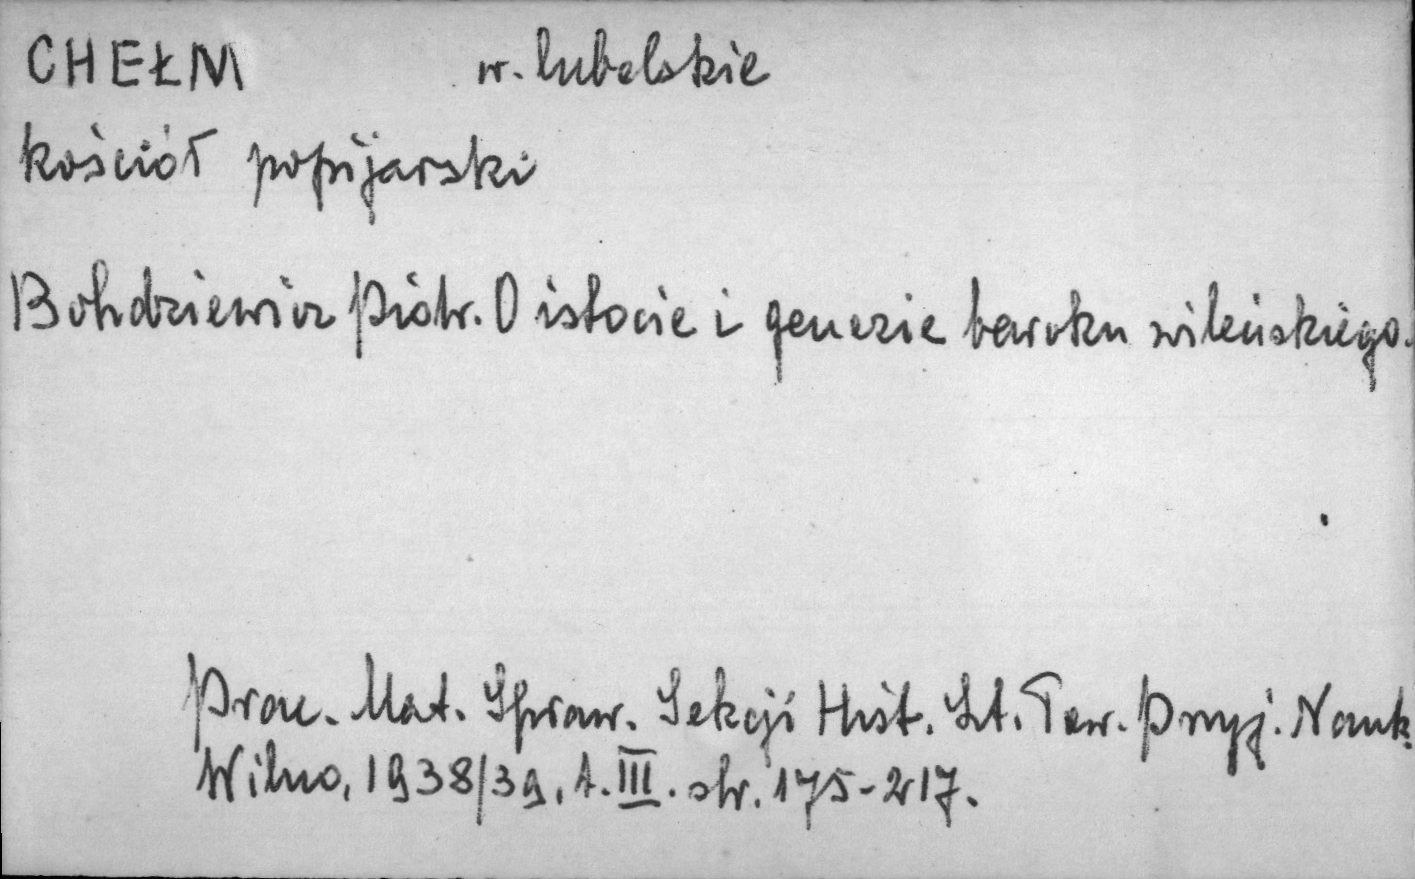 CHEŁM w. lubelskie
kościół popijarski
Bohdziewicz Piotr. O istocie i genezie baroku wileńskiego.
Prac. Mat. Spraw. Sekcji Hist. Szt. Tow. Przyj. Nauk.
Wilno, 1938/39, t. III. str. 175-217.